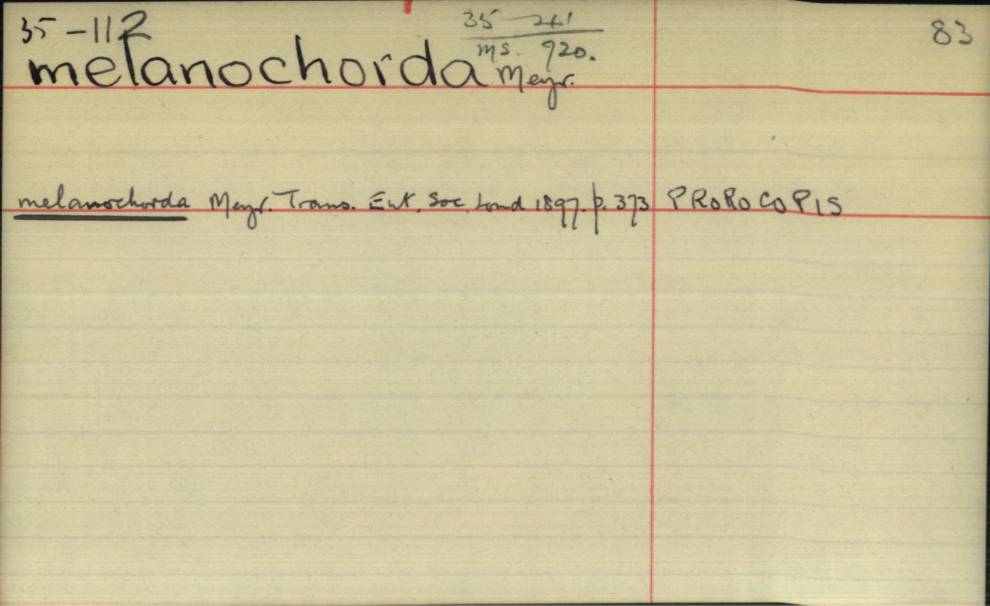 35-112
35-241
83
ms. 920.
melanochorda Meyr.
melanochorda Meyr. Trans. Ent. Soc. Lond 1897. p. 373 PROROCOPIS